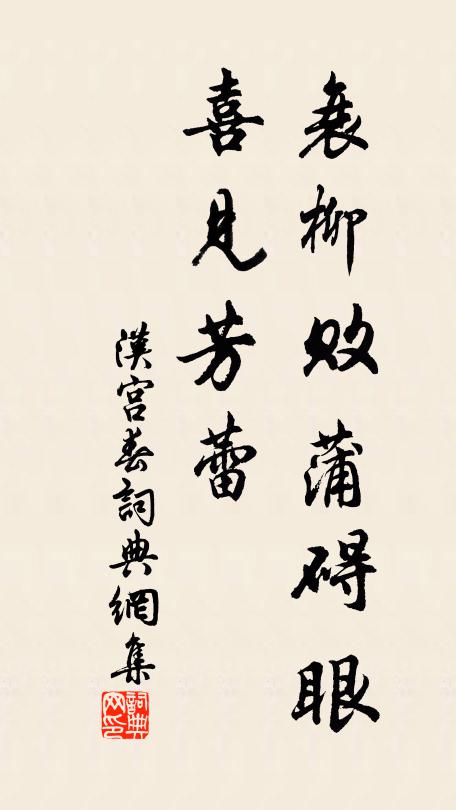 衰柳敗蒲碍眼
喜見芳蕾
漢宮春詞典網集
詞典
网印